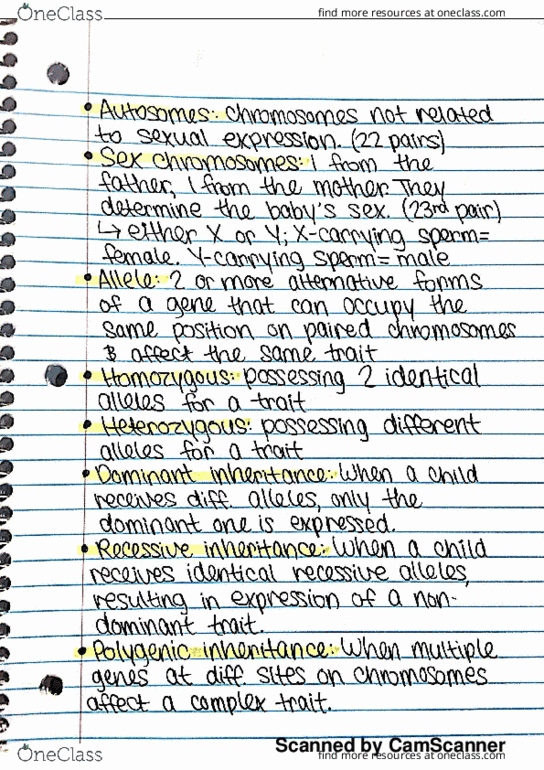 OneClass
find more resources at oneclass.com
• Autosomes: chromosomes not related
to sexual expression. (22 pairs)
• Sex chromosomes: 1 from the
father, 1 from the mother. They
determine the baby's sex. (23rd pair)
↳ either X or Y; X-carrying sperm=
female. Y-carrying sperm= male
• Allele: 2 or more alternative forms
of a gene that can occupy the
same position on paired chromosomes
& affect the same trait
• Homozygous: possessing 2 identical
alleles for a trait
• Heterozygous: possessing different
alleles for a trait
• Dominant inheritance: When a child
receives diff. alleles, only the
dominant one is expressed.
• Recessive inheritance: When a child
receives identical recessive alleles,
resulting in expression of a non-
dominant trait.
• Polygenic inheritance: When multiple
genes at diff sites on chromosomes
affect a complex trait.
Scanned by CamScanner
OneClass
find more resources at oneclass.com